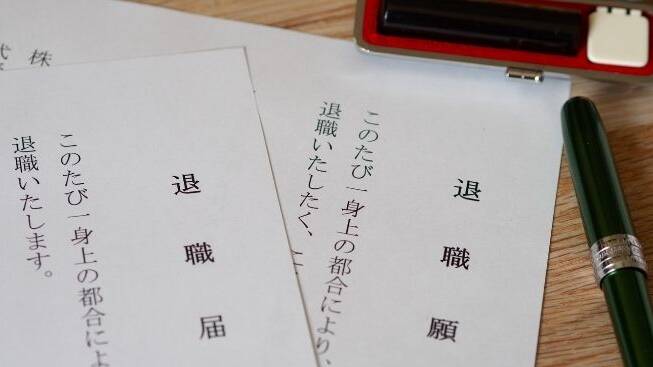 退職願
このたび一身上の都合により、
退職いたしたく、
株
退職届
このたび一身上の都合によ
退職いたします。